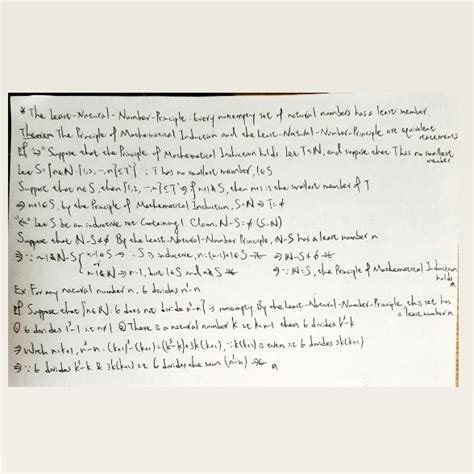 * The Least-Natural-Number-Principle: Every nonempty set of natural numbers has a least member.
Theorem The Principle of Mathematical Induction and the Least-Natural-Number-Principle are equivalent statements
pf "⇒" Suppose that the Principle of Mathematical Induction holds. Let T⊆N, and suppose that T has no smallest member
Let S={n∈N: {1,2,…,n}⊆T^c} ∵ T has no smallest member, 1∈S
Suppose that n∈S, then {1,2,…,n}⊆T^c ⇒ if n+1∉S, then n+1 is the smallest member of T
⇒ n+1∈S, by the Principle of Mathematical Induction, S=N ⇒ T=∅
"⇐" Let S be an inductive set containing 1. Claim: N-S=∅ (S=N)
Suppose that N-S≠∅ By the Least-Natural-Number Principle, N-S has a least number n
⇒ ∵ n-1∉N-S n-1∈S ⇒ ∵ S is inductive, n=(n-1)+1∈S ⇒ N-S=∅
n-1∉N ⇒ n=1, but 1∈S and n∉S ⇒ ∵ N=S, the Principle of Mathematical Induction holds
Ex For any natural number n, 6 divides n³-n
pf Suppose that {n∈N: 6 does not divide n³-n} is nonempty By the Least-Natural-Number-Principle, this set has a least number n
① 6 divides 1³-1 ② There is a natural number k st k=n-1 then 6 divides k³-k
⇒ With n=k+1, n³-n=(k+1)³-(k+1)=(k³-k)+3k(k+1), ∵ k(k+1) is even st 6 divides 3k(k+1)
⇒ ∵ 6 divides k³-k & 3k(k+1) st 6 divides the sum (n³-n)